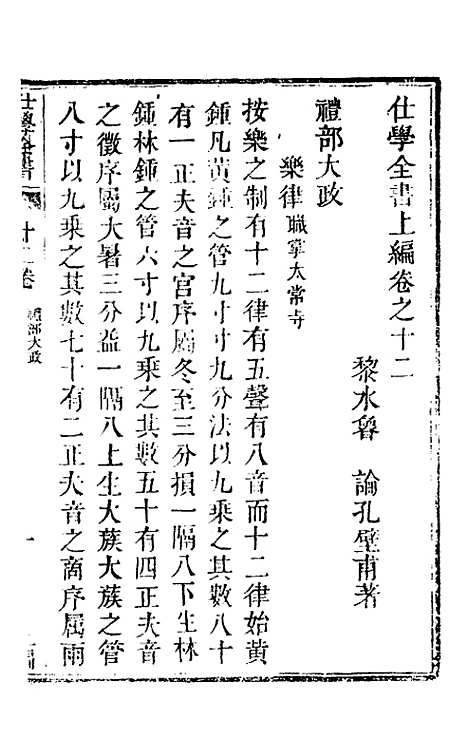 仕學全書上編卷之十二
黎水魯 論孔壁甫著
禮部大政
樂律 職掌太常寺
按樂之制有十二律有五聲有八音而十二律始黃
鍾凡黃鍾之管九寸寸九分法以九乘之其數八十
有一正夫音之宮序屬冬至三分損一隔八下生林
鍾林鍾之管六寸以九乘之其數五十有四正夫音
之徵序屬大暑三分益一隔八上生大簇大簇之管
八寸以九乘之其數七十有二正夫音之商序屬雨
仕學全書 十二卷 禮部大政 一